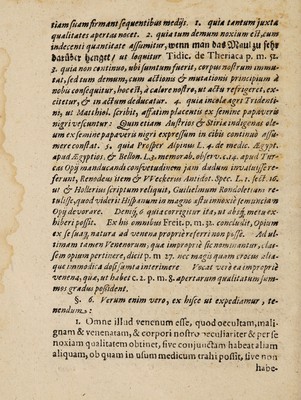 tiam suam firmant sequentibus medijs. 1. quia tantum juxta
qualitates apertas nocet. 2. quia tum demum noxium est, cum
indecenti quantitate assumitur, wenn man das Maul zu sehr
darüber henget/ ut loquitur Tidic. de Theriaca p. m. 32.
3. quia non continuò, ubi sumtum fuerit, corpus nostrum immu-
tat, sed tum demum, cum actionis & mutationis principium à
nobis consequitur, hoc est, à calore nostro, ut actu refrigeret, ex-
citetur, & in actum deducatur. 4. quia incolæ ages Tridenti-
ni, ut Matthiol. scribit, affatim placentis ex semine papaveris
nigri vescuntur: Quin etiam Austrios & Stirios indigenas ole-
um ex semine papaveris nigri expressum in cibis continuò assu-
mere constat. 5. quia Prosper Alpinus L. 4. de medic. Ægypt.
apud Ægyptios, & Bellon. L. 3. memorab. observ. c. 14. apud Tur-
cas Opij manducandi consvetudinem jam dudum invaluisse re-
ferunt, Renodæus item & Weckerus Antidot. Spec. L. 1. sect. 16.
ut & Hollerius scriptum reliquit, Guilielmum Rondoletium re-
tulisse, quod viderit Hispanum in magno æstu innoxiè semunciam
Opij devorare. Deniq; 6. quia corrigitur ita, ut absq; metu ex-
hiberi possit. Ex his omnibus Freit. p. m. 32. concludit, Opium
ex se suaq; natura ad venena propriè referri non posse. Ad ul-
timam tamen Venenorum, quæ impropriè sic nominantur, clas-
sem opium pertinere, dicit p. m. 27. nec magis quam crocus alia-
que immodica dosi sumta interimere Vocat verò ea impropriè
venena, quæ, ut habet c. 2. p. m. 8. apertarum qualitatum jum-
mos gradus possident.
§. 6. Verum enim vero, ex hisce ut expediamur, te-
nendum:
1. Omne illud venenum esse, quod occultam, mali-
gnam & venenatam, & corpori nostro peculiariter & per se
noxiam qualitatem obtinet, sive conjunctam habeat aliam
aliquam, ob quam in usum medicum trahi possit, sive non
habe-